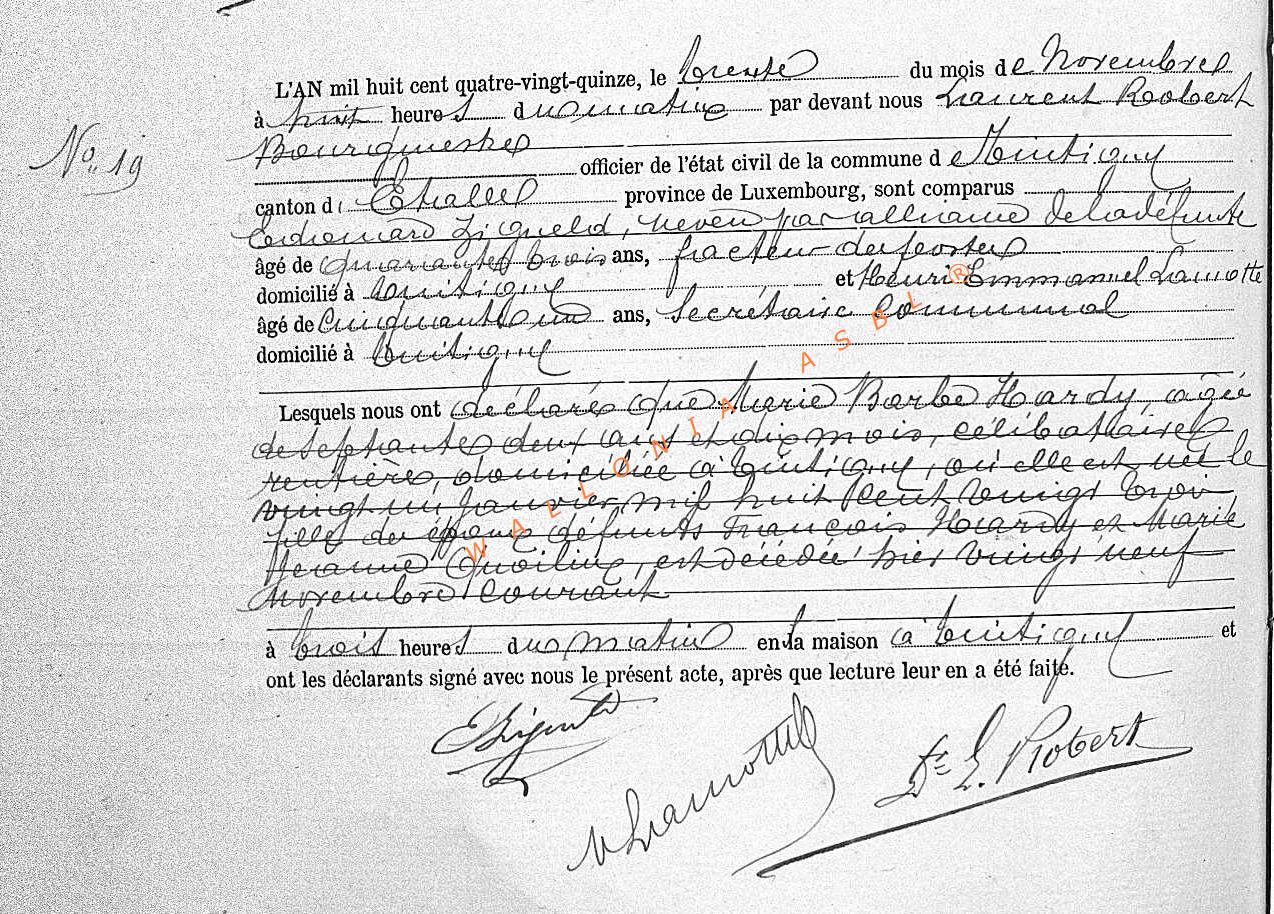 L'AN mil huit cent quatre-vingt-quinze, le trente du mois de Novembre
à huit heures du matin par devant nous Laurent Robert
No 19
Bourgmestre
officier de l'état civil de la commune de Tintigny
canton d' Etalle province de Luxembourg, sont comparus
neveu par alliance de la défunte
âgé de quarante trois ans, facteur des postes
domicilié à Tintigny et Henri Emmanuel Lamotte
âgé de Cinquante un ans, Secrétaire Communal
domicilié à Tintigny
Lesquels nous ont déclaré que Marie Barbe Hardy, agée
de septante deux ans et dix mois, célibataire
rentière, domiciliée à Tintigny, où elle est née le
vingt un janvier mil huit cent vingt trois,
fille des époux défunts François Hardy et Marie
Jeanne est décédée hier vingt neuf
novembre courant
à trois heures du matin en la maison à Tintigny et
ont les déclarants signé avec nous le présent acte, après que lecture leur en a été faite.
H Lamotte
Dr L. Robert
WALLONIA ASBL ®